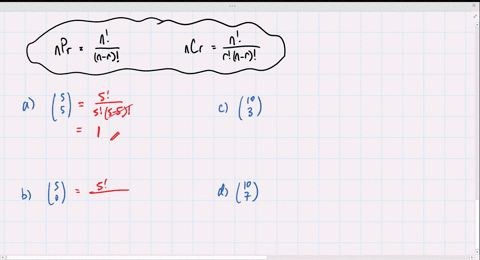 nPr = n!/(n-r)!
nCr = n!/r!(n-r)!
a) (5 5) = 5!/5!(5-5)!
= 1
b) (5 0) = 5!
c) (10 3)
d) (10 7)